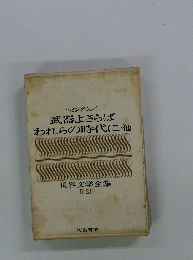 ヘミングウェイ
武器よさらば
われらの時代に 他
世界文学全集